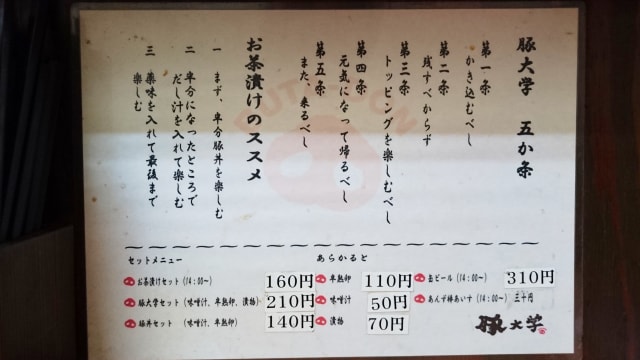 豚大学 五か条
第一条
かき込むべし
第二条
残すべからず
第三条
トッピングを楽しむべし
第四条
元気になって帰るべし
第五条
また、来るべし
お茶漬けのススメ
一 まず、半分豚丼を楽しむ
二 半分になったところで
だし汁を入れて楽しむ
三 薬味を入れて最後まで
楽しむ
BUTADON
セットメニュー
お茶漬けセット(14:00〜) 160円
豚大学セット(味噌汁、半熟卵、漬物) 210円
豚丼セット (味噌汁、半熟卵) 140円
あらかると
半熟卵 110円
味噌汁 50円
漬物 70円
缶ビール(14:00〜) 310円
あんず棒あいす(14:00〜) 三十円
豚大学